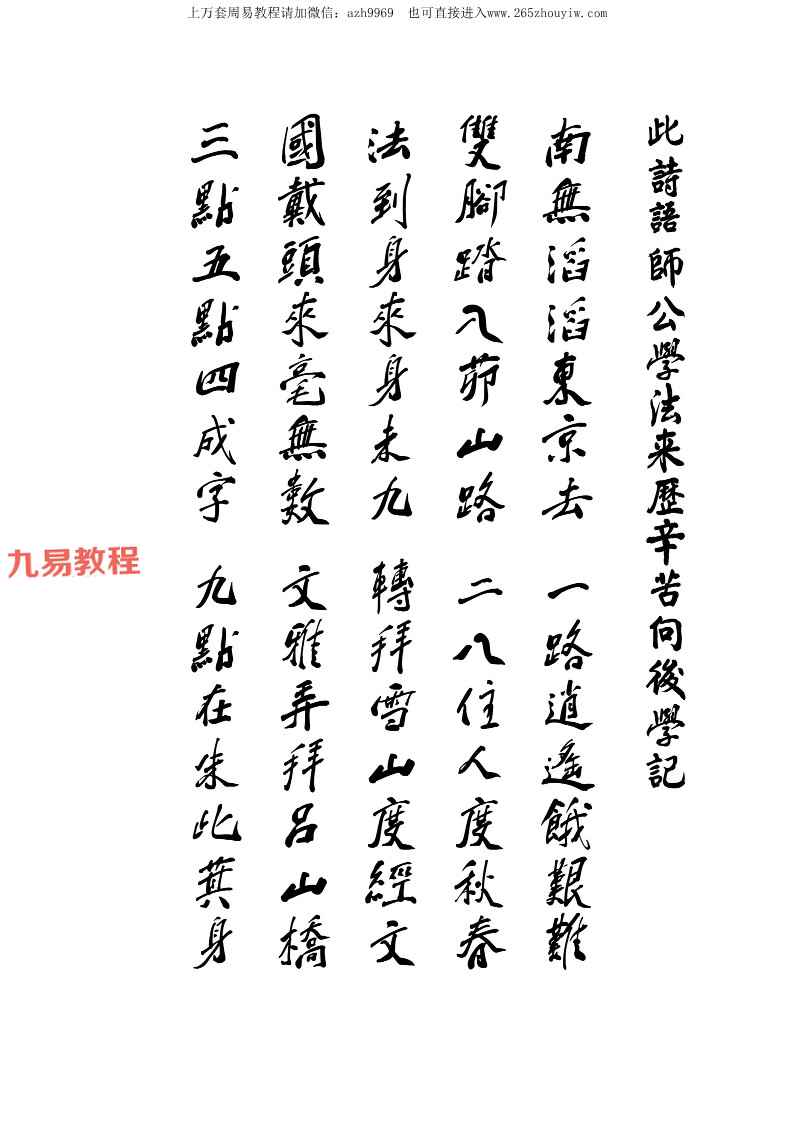 上万套周易教程请加微信：azh9969　也可直接进入www.265zhouyiw.com
此詩語師公學法来歷辛苦向後學記
南無滔滔東京去　一路逍遙餓艱難
雙腳踏入茆山路　二八住人度秋春
法到身來身未九　轉拜雪山度經文
國戴頭來毫無數　文雅弄拜呂山橋
三點五點四成字　九點在朱此箕身
九易教程